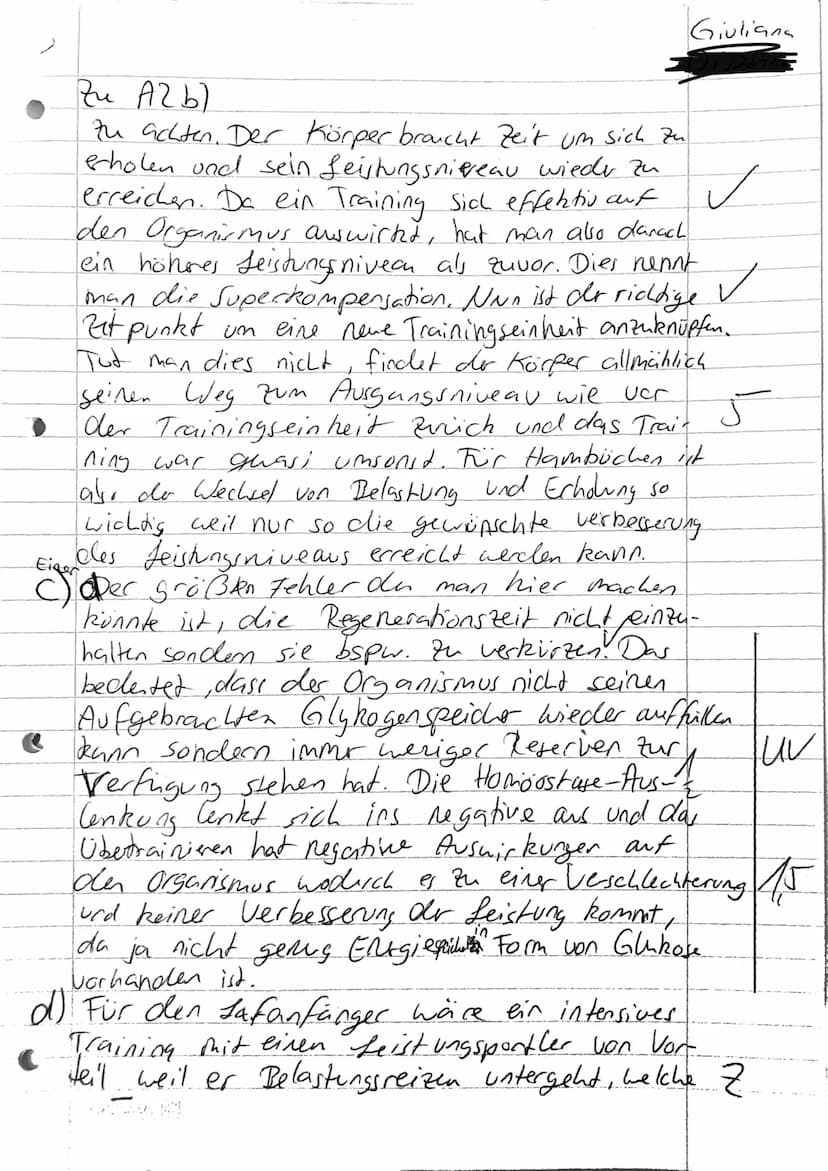 Giuliana
Zu A2 b)
zu achten. Der Körper braucht Zeit um sich zu
erholen und sein Leistungsniveau wieder zu
erreichen. Da ein Training sich effektiv auf
den Organismus auswirkt, hat man also danach
ein höheres Leistungsniveau als zuvor. Dies nennt
man die Superkompensation. Nun ist der richtige
Zeitpunkt um eine neue Trainingseinheit anzuknüpfen.
Tut man dies nicht, findet der Körper allmählich
seinen Weg zum Ausgangsniveau wie vor
der Trainingseinheit zurück und das Trai-
5
ning war quasi umsonst. Für Hambüchen ist
also der Wechsel von Belastung und Erholung so
wichtig weil nur so die gewünschte verbesserung
des Leistungsniveaus erreicht werden kann.
Einer
c) der größten Fehler den man hier machen
könnte ist, die Regenerationszeit nicht einzu-
halten sondern sie bspw. zu verkürzen. Das
bedeutet, dass der Organismus nicht seinen
Aufgebrachten Glykogenspeicher wieder auffüllen
kann sondern immer weniger Reserven zur
UV
Verfügung stehen hat. Die Homöostase-Aus-
lenkung lenkt sich ins negative aus und das
Übertrainieren hat negative Auswirkungen auf
den Organismus wodurch es zu einer Verschlechterung
1,5
und keiner Verbesserung der Leistung kommt,
da ja nicht genug Energie in Form von Glukose
vorhanden ist.
d) Für den Lafanfänger wäre ein intensives
Training mit einen Leistungsportler von Vor-
teil weil er Belastungsreizen untergeht, welche Z